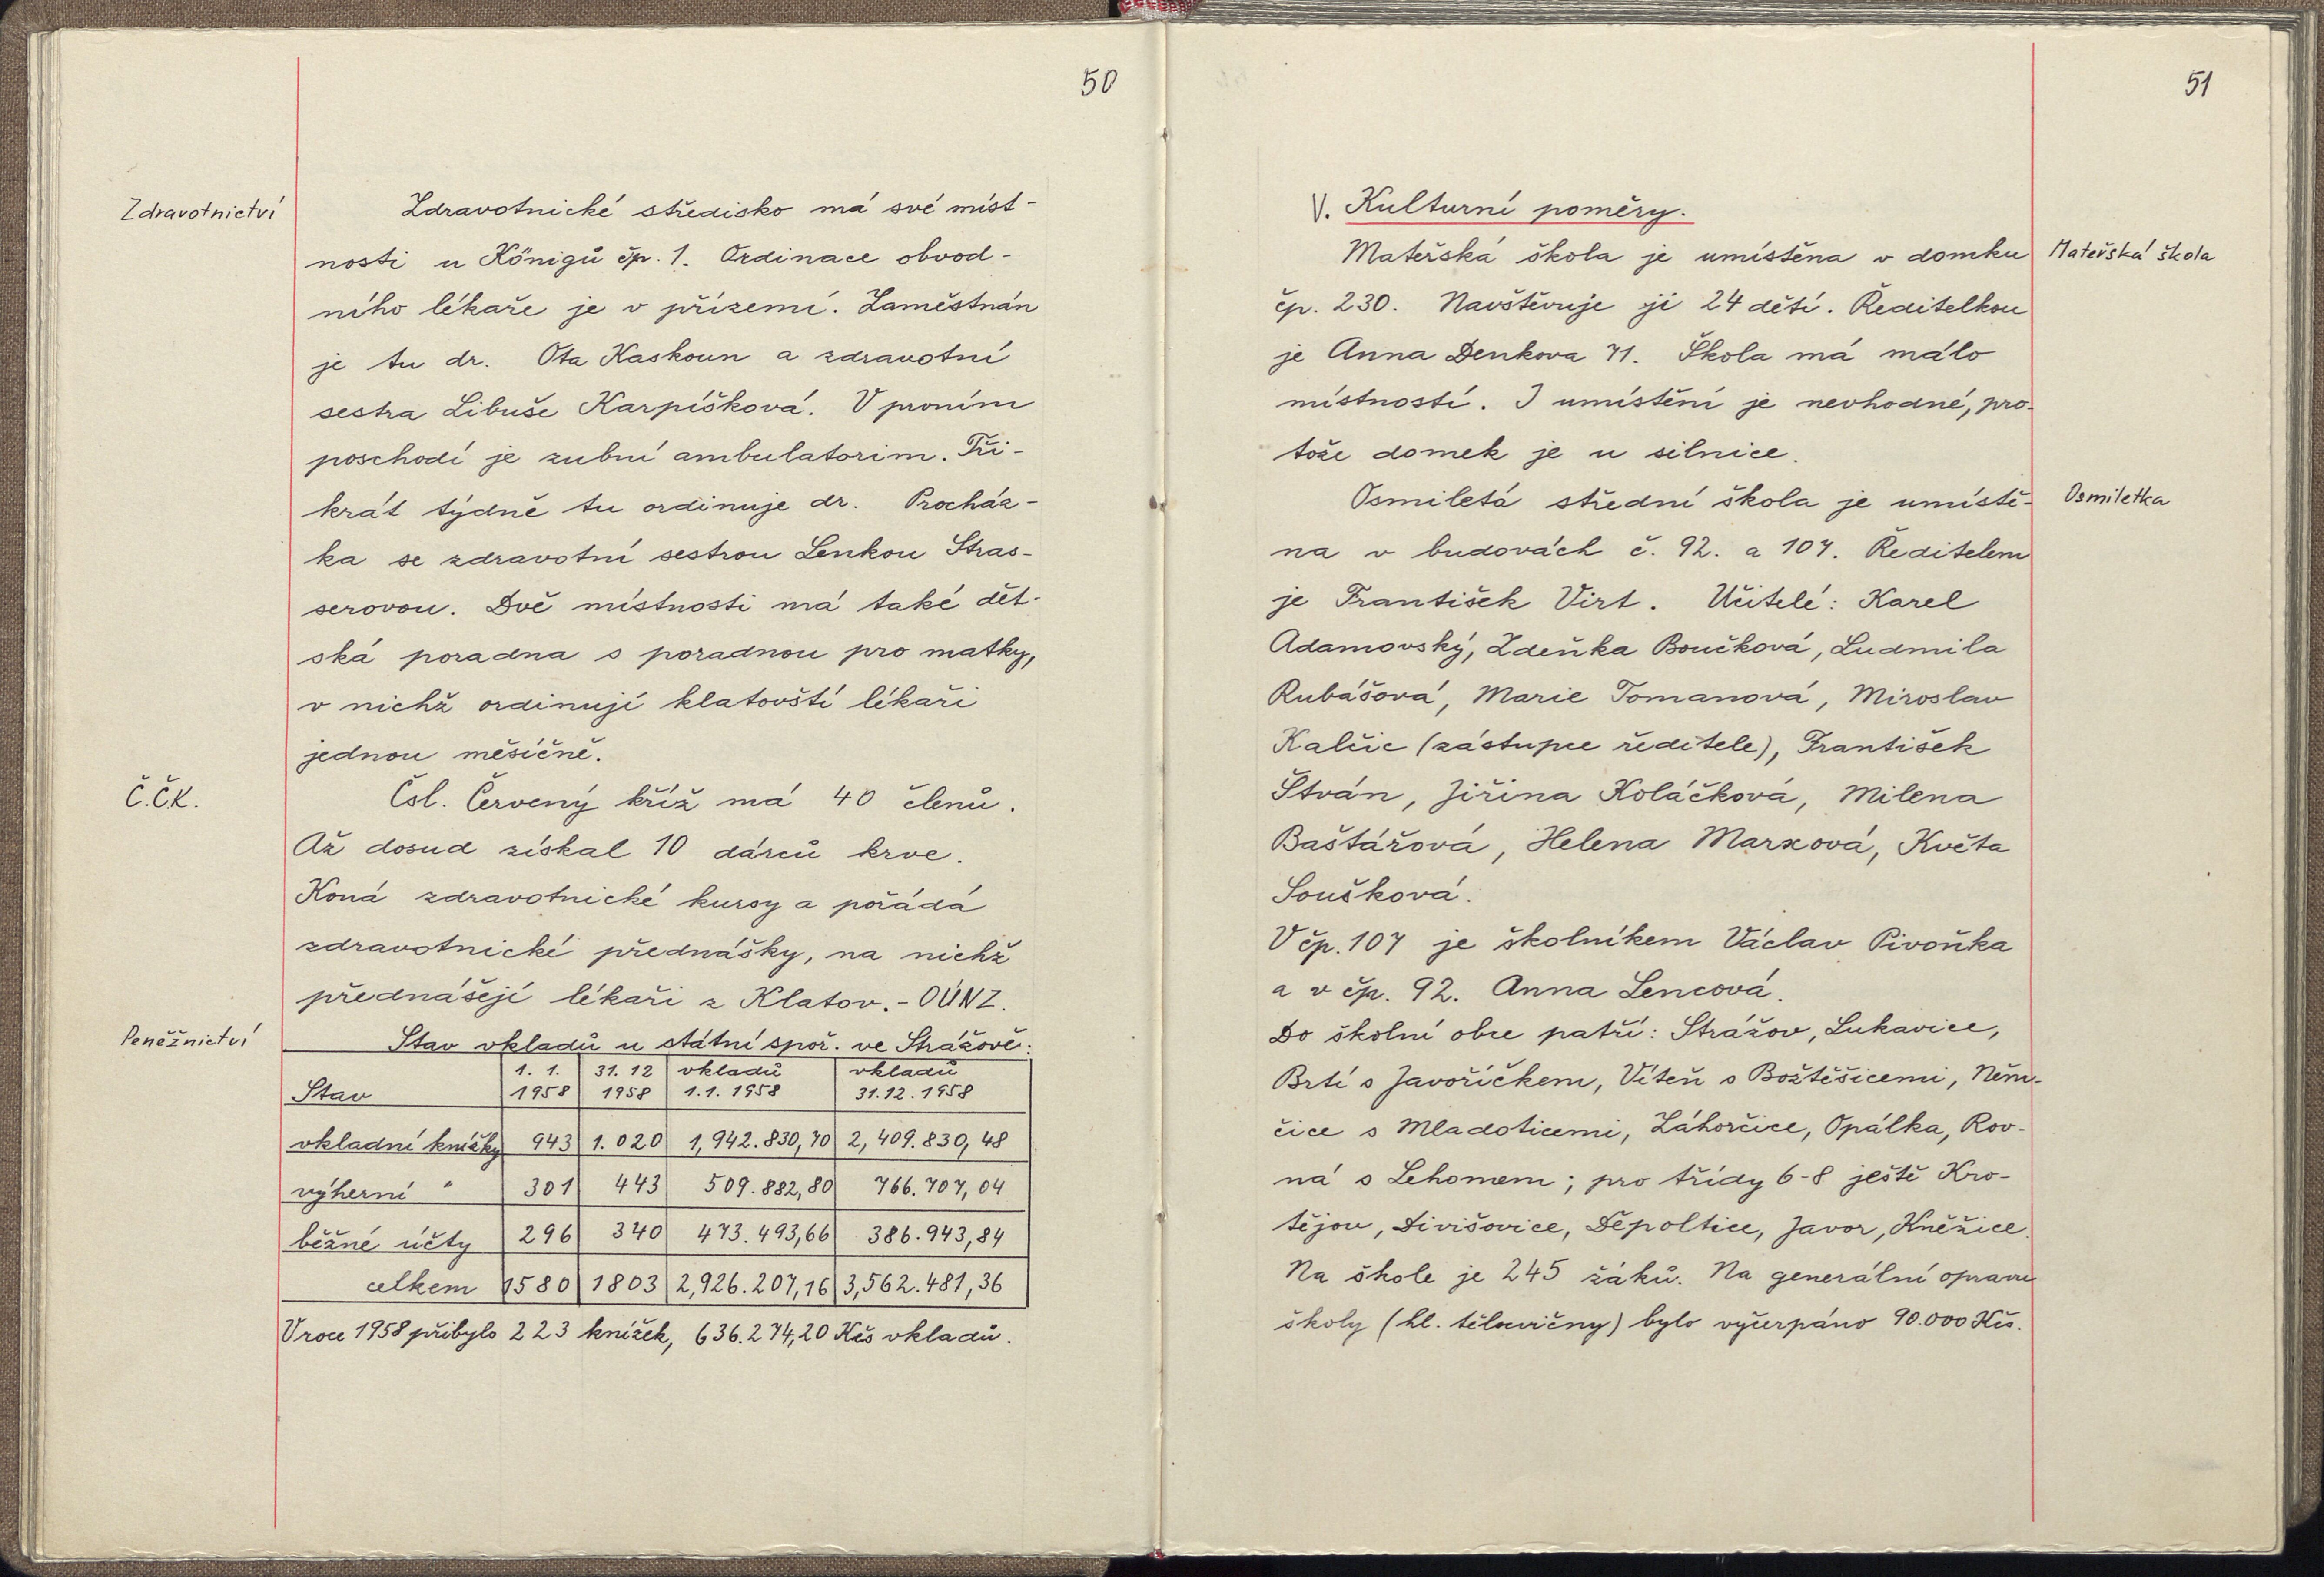 50
Zdravotnictví
Zdravotnické středisko má své míst-
nosti u Königů čp. 1. Ordinace obvod-
ního lékaře je v přízemí. Zaměstnán
je tu dr. Ota Kaskoun a zdravotní
sestra Libuše Karpíšková. V prvním
poschodí je zubní ambulatorim. Tři-
krát týdně tu ordinuje dr. Procház-
ka se zdravotní sestrou Lenkou Stras-
serovou. Dvě místnosti má také dět-
ská poradna s poradnou pro matky,
v nichž ordinují klatovští lékaři
jednou měsíčně.
Č.Č.K.
Čsl. Červený kříž má 40 členů.
Až dosud získal 10 dárců krve.
Koná zdravotnické kursy a pořádá
zdravotnické přednášky, na nichž
přednášejí lékaři z Klatov. - OÚNZ.
Peněžnictví
Stav vkladů u státní spoř. ve Strážově:
Stav 1. 1. 1958 31. 12 1958 vkladů 1. 1. 1958 vkladů 31. 12. 1958
vkladní knížky 943 1. 020 1,942.830,70 2,409.830,48
výherní " 301 443 509.882,80 766.707,04
běžné účty 296 340 473.493,66 386.943,84
celkem 1580 1803 2,926.207,16 3,562.481,36
V roce 1958 přibylo 223 knížek, 636.274,20 Kčs vkladů.
51
V. Kulturní poměry.
Mateřská škola
Mateřská škola je umístěna v domku
čp. 230. Navštěvuje ji 24 dětí. Ředitelkou
je Anna Denkova 71. Škola má málo
místností. I umístění je nevhodné, pro-
tože domek je u silnice.
Osmiletka
Osmiletá střední škola je umístě-
na v budovách č. 92. a 107. Ředitelem
je František Virt. Učitelé: Karel
Adamovský, Zdeňka Boučková, Ludmila
Rubášová, Marie Tomanová, Miroslav
Kalčic (zástupce ředitele), František
Štván, Jiřina Koláčková, Milena
Baštářová, Helena Marxová, Květa
Soušková.
V čp. 107 je školníkem Václav Pivoňka
a v čp. 92. Anna Lencová.
Do školní obce patří: Strážov, Lukavice,
Brtí s Javoříčkem, Viteň s Božtěšicemi, Něm-
čice s Mladoticemi, Záhorčice, Opálka, Rov-
ná s Lehomem; pro třídy 6-8 ještě Kro-
tějov, Divišovice, Děpoltice, Javor, Kněžice.
Na škole je 245 žáků. Na generální opravu
školy (hl. tělocvičny) bylo vyčerpáno 90.000 Kčs.